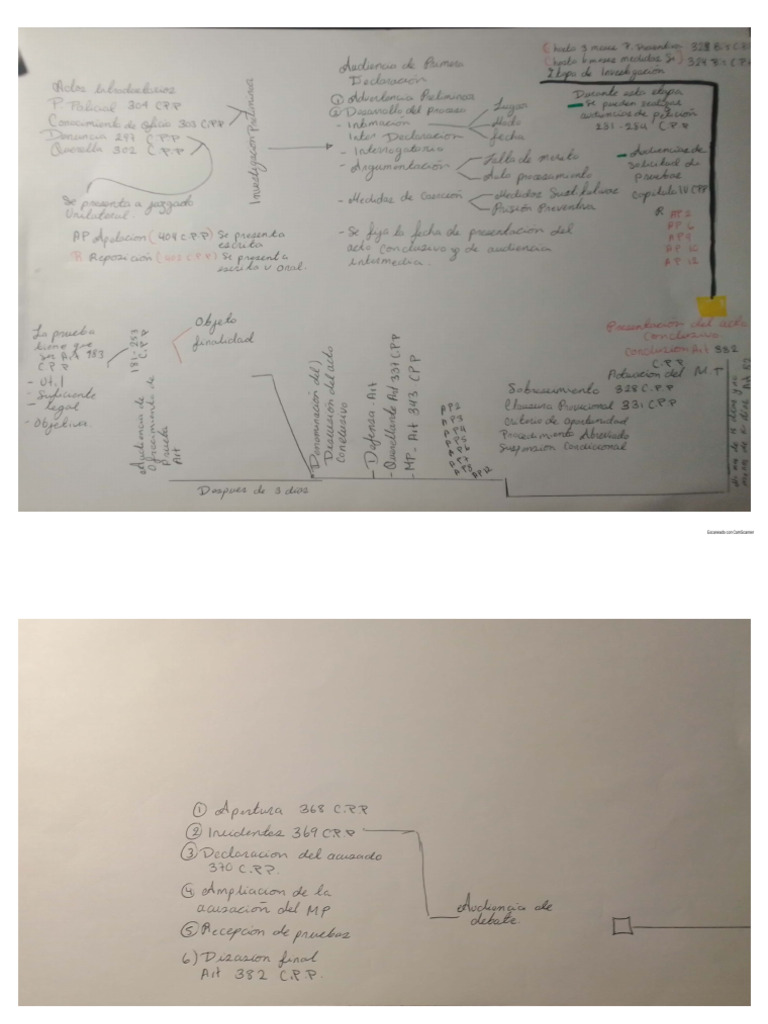 Actos Introductorios
P. Policial 304 C.P.P
Conocimiento de Oficio 303 C.P.P
Denuncia 297 C.P.P
Querella 302 C.P.P
Se presenta a juzgado
Unilateral.
AP Apelacion (404 C.P.P) Se presenta
escrita
R Reposición (402 C.P.P) Se presenta
escrito u oral.
Investigacion Preliminar
Audiencia de Primera
Declaración
① Advertencia Preliminar
② Desarrollo del proceso
- Intimación
Inter Declaración
- Interrogatorio
- Argumentación
- Medidas de Coerción
Lugar
Modo
fecha
Falta de merito
Auto procesamiento
Medidas Sustitutivas
Prisión Preventiva
- Se fija la fecha de presentación del
acto conclusivo y de audiencia
intermedia.
(hasta 3 meses P. Preventiva 323 Bis C.P.P
(hasta 6 meses medidas Su) 324 Bis C.P.P
Etapa de Investigación
Durante esta etapa
- Se pueden realizar
audiencias de petición
C.P.P
- Audiencias de
solicitud de
pruebas
Capitulo IV CPP
R
AP 2
AP 6
AP 9
AP 10
AP 12
Presentacion del acto
Conclusivo
Conclusion Art 332
C.P.P
Actuación del M.P
Sobreseimiento 328 C.P.P
Clausura Provisional 331 C.P.P
Criterio de oportunidad
Procedimiento Abreviado
Suspension Condicional
La prueba
tiene que
ser Art 183
C.P.P
- Util
- Suficiente
- legal
- Objetiva.
181-253
C.P.P
Audiencia de
Ofrecimiento de
Prueba
Art
Objeto
finalidad
Despues de 3 dias
Denominación del)
Discusión del acto
Conclusivo
- Defensa - Art
- Querellante Art 337 CPP
- MP - Art 343 CPP
AP 12
Escaneado con CamScanner
① Apertura 368 C.P.P
② Incidentes 369 C.P.P
③ Declaracion del acusado
370 C.P.P.
④ Ampliacion de la
acusación del MP
⑤ Recepción de pruebas
6) Disasion final
Art 382 C.P.P.
Audiencia de
debate